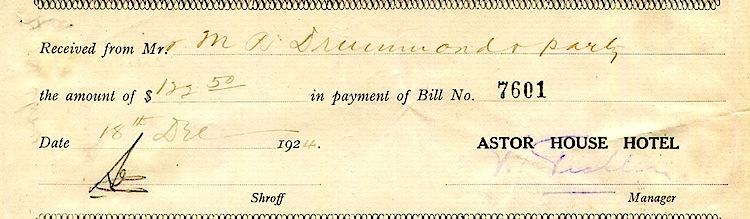 Received from Mr. M R Drummond & party
the amount of $ 122 50 in payment of Bill No. 7601
Date 18th Dec 1924.
ASTOR HOUSE HOTEL
Shroff Manager